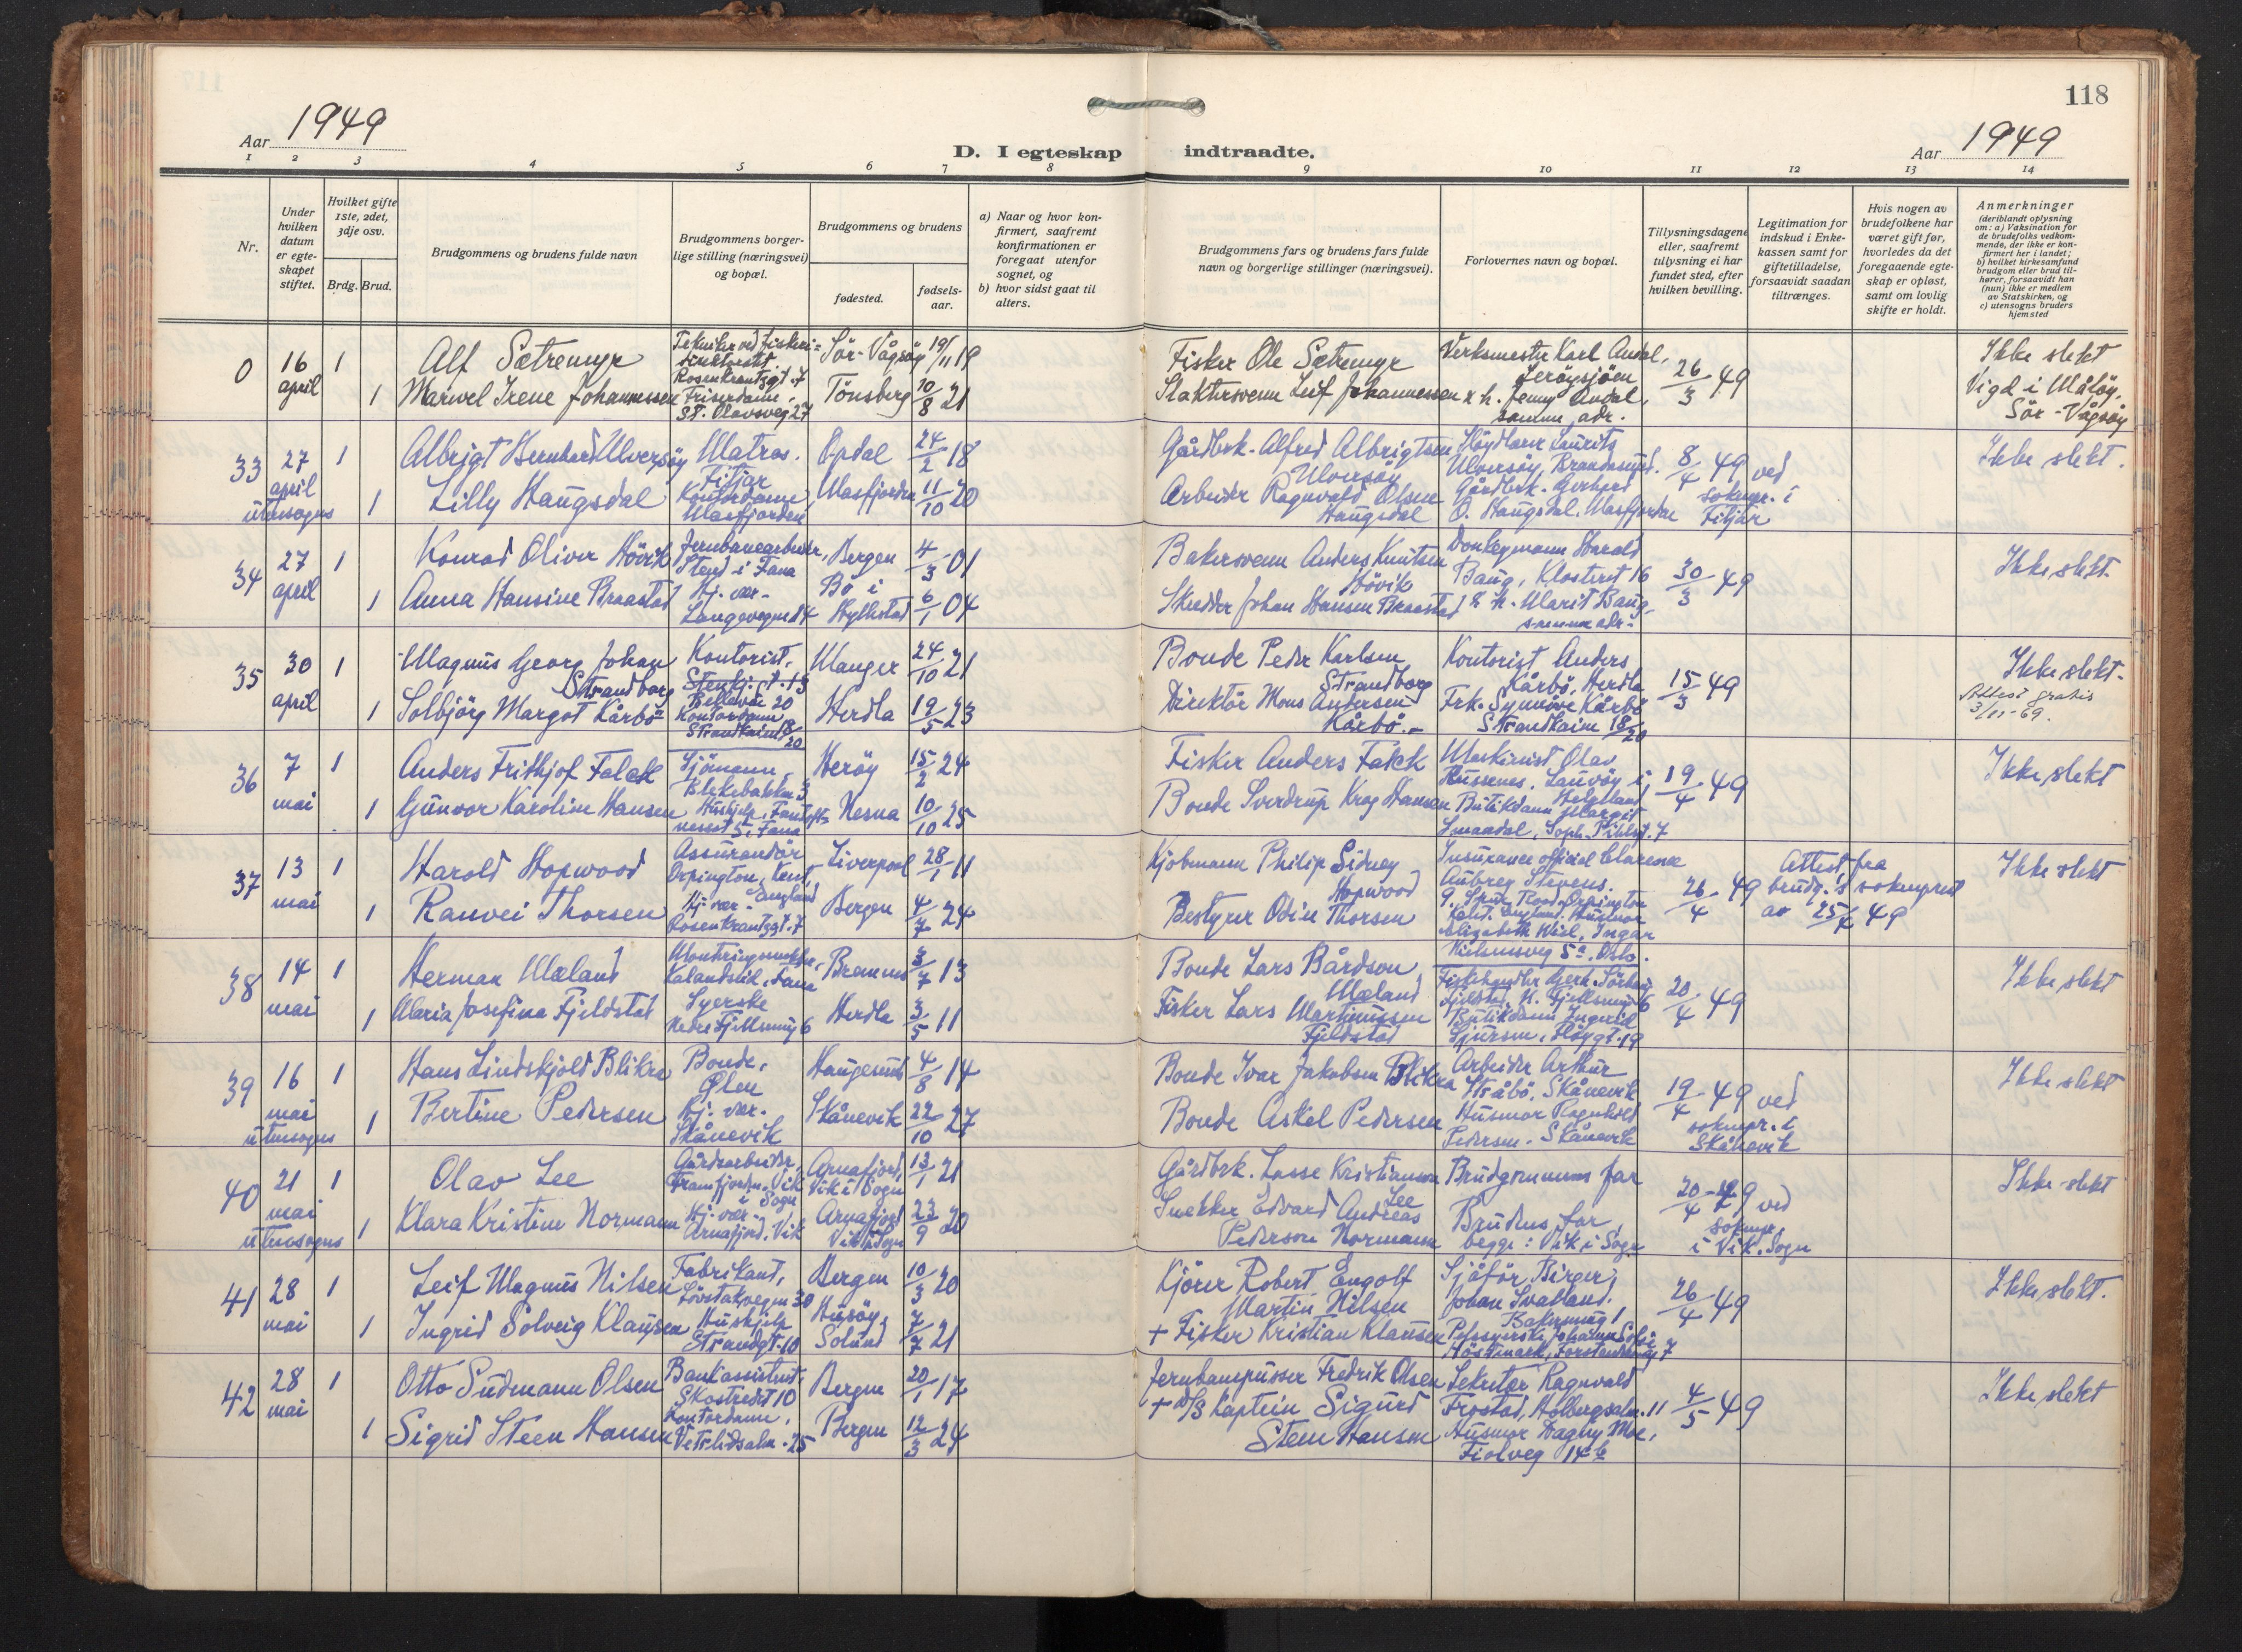 118
Aar 1949
D. I egteskap indtraadte.
Aar 1949
1 2 3 4 5 6 7 8 9 10 11 12 13 14
Nr.
Under hvilken datum er egteskapet stiftet.
Hvilket gifte 1ste, 2det, 3dje osv.
Brdg. Brud.
Brudgommens og brudens fulde navn
Brudgommens borgerlige stilling (næringsvei) og bopæl.
Brudgommens og brudens
fødested.
fødselsaar.
a) Naar og hvor konfirmert, saafremt konfirmationen er foregaat utenfor sognet, og
b) hvor sidst gaat til alters.
Brudgommens fars og brudens fars fulde navn og borgerlige stillinger (næringsvei).
Forlovernes navn og bopæl.
Tillysningsdagene eller, saafremt tillysning ei har fundet sted, efter hvilken bevilling.
Legitimation for indskud i Enkekassen samt for giftetilladelse, forsaavidt saadan tiltrænges.
Hvis nogen av brudefolkene har været gift før, hvorledes da det foregaaende egteskap er opløst, samt om lovlig skifte er holdt.
Anmerkninger
(deriblandt oplysning om: a) Vaksination for de brudefolks vedkommende, der ikke er konfirmert her i landet; b) hvilket kirkesamfund brudgom eller brud tilhører, forsaavidt han (hun) ikke er medlem av Statskirken, og c) utensogns bruders hjemsted
0 16 april 1 Alf Sætremyr Tekniker ved fiskeridirektoratet Rosenkrantzgt. 7 Sør-Vågsøy 19/11 19 Fisker Ole Sætremyr Verksmester Karl Andal, Lerøysjøen 26/3 49 Ikke slekt
1 Marvel Irene Johannessen Friserdame, St. Olavsveg 27 Tønsberg 10/8 21 Slaktersvenn Leif Johannessen & h. Jenny Andal, samme adr. Vigd i Måløy, Sör-Vågsøy
33 27 april 1 Albrigt Bernhard Ulversøy Matros. Fitjar Opdal 24/2 18 Gårdbrk. Alfred Albrigtsen Ulversøy Laurits Ulversøy, Brandasund. 8/4 49 ved sokнpr. i Fitjar Ikke slekt.
utensogns 1 Lilly Haugsdal Kontordame, Masfjorden Masfjorden 11/10 20 Arbeider Ragnvald Olsen Haugsdal Gårdbrk. Gerhard O. Haugsdal. Masfjorden
34 27 april 1 Konrad Oliver Hövik Jernbanearbeider, Stend i Fana Bergen 4/3 01 Bakersvenn Anders Knutsen Hövik Donkeymann Harald Baug, Klosteret 16 30/3 49 Ikke slekt.
1 Anna Hansine Braastad Hj. vær. Bö i Hyllestad 6/1 04 Skredder Johan Hansen Braastad & h. Marit Baug, samme adr.
35 30 april 1 Magnus Georg Johan Strandborg Kontorist, Bellevue 20 Manger 24/10 21 Bonde Peder Karlsen Strandborg Kontorist Anders Kårbö, Herdla 15/3 49 Ikke slekt.
1 Solbjörg Margot Kårbö Kontordame Strandkaien 18/20 Herdla 19/5 23 Direktör Mons Andersen Kårbö. Frk. Synnöve Kårbö Strandkaien 18/20 Attest gratis 3/11-69.
36 7 mai 1 Anders Frithjof Falck Sjömann, Blekebakken 3 Heröy 15/2 24 Fisker Anders Falck Maskinist Olav 19/4 49 Ikke slekt
1 Gunvor Karoline Hansen Hushjelp, Fana Nesna 10/10 25 Bonde Sverdrup Krog Hansen Butikdame Margit Smaadal, Soph. Pihlsgt. 7
37 13 mai 1 Harold Hopwood Assurandör Orpington, Kent, England Liverpool 28/1 11 Kjöbmann Philip Sidney Hopwood Insurance official Clarence Aubrey Stevens. 26/4 49 Attest fra brudg.s sokneprest av 25/4 49 Ikke slekt
1 Ranvei Thorsen Hj. vær. Rosenkrantzgt. 7 Bergen 4/7 24 Bestyrer Odin Thorsen
38 14 mai 1 Herman Mæland Kalandseid, Fana Bremnes 3/7 13 Bonde Lars Bårdson Mæland 20/4 49 Ikke slekt
1 Maria Josefina Fjeldstad Syerske Nedre Fjellsmug 6 Herdla 3/5 11 Fisker Lars Martinussen Fjeldstad Butikdame Ingerid
39 16 mai 1 Hans Lindskjold Blikra Bonde, Ølen Haugesund 4/8 14 Bonde Ivar Jakobsen Blikra Arbeider Arthur Skånevik 19/4 49 ved soknpr. i Skånevik Ikke slekt
utensogns 1 Bertine Pedersen Hj. vær. Skånevik Skånevik 22/10 27 Bonde Askel Pedersen Husmor Ragnhild Pedersen. Skånevik
40 21 mai 1 Olav Lee Gårdsarbeider, Framfjorden, Vik i Sogn Arnafjord, Vik i Sogn 13/1 21 Gårdbrk. Lasse Kristianson Lee Brudgommens far 20/4 49 ved soknpr. i Vik. Sogn Ikke slekt
utensogns 1 Klara Kristine Normann Hj. vær. Arnafjord, Vik Arnafjord Vik i Sogn 23/9 20 Snekker Edvard Andreas Pederson Normann Brudens far, begge: Vik i Sogn
41 28 mai 1 Leif Magnus Nilsen Fabrikant, Lövstakvegen 30 Bergen 10/3 20 Kjörer Robert Engolf Martin Nilsen Sjåför Birger Johan Svalland. 26/4 49 Ikke slekt.
1 Ingrid Solveig Klausen Hushjelp Strandgt. 10 Husöy, Solund 7/7 21 + Fisker Kristian Klausen
42 28 mai 1 Otto Sudmann Olsen Bankassistent, Skostredet 10 Bergen 20/1 17 Jernbanepusser Fredrik Olsen Sekretær Ragnvald Frostad, Holbergsalm. 11 4/5 49 Ikke slekt
1 Sigrid Steen Hansen Kontordame, Vetrlidsalm. 25 Bergen 12/3 24 + D/S Kaptein Sigurd Steen Hansen Husmor Dagny Moe, Fiolveg 14b